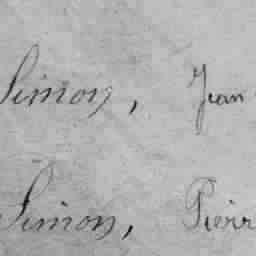 Simon, Jean
Simon, Pierr